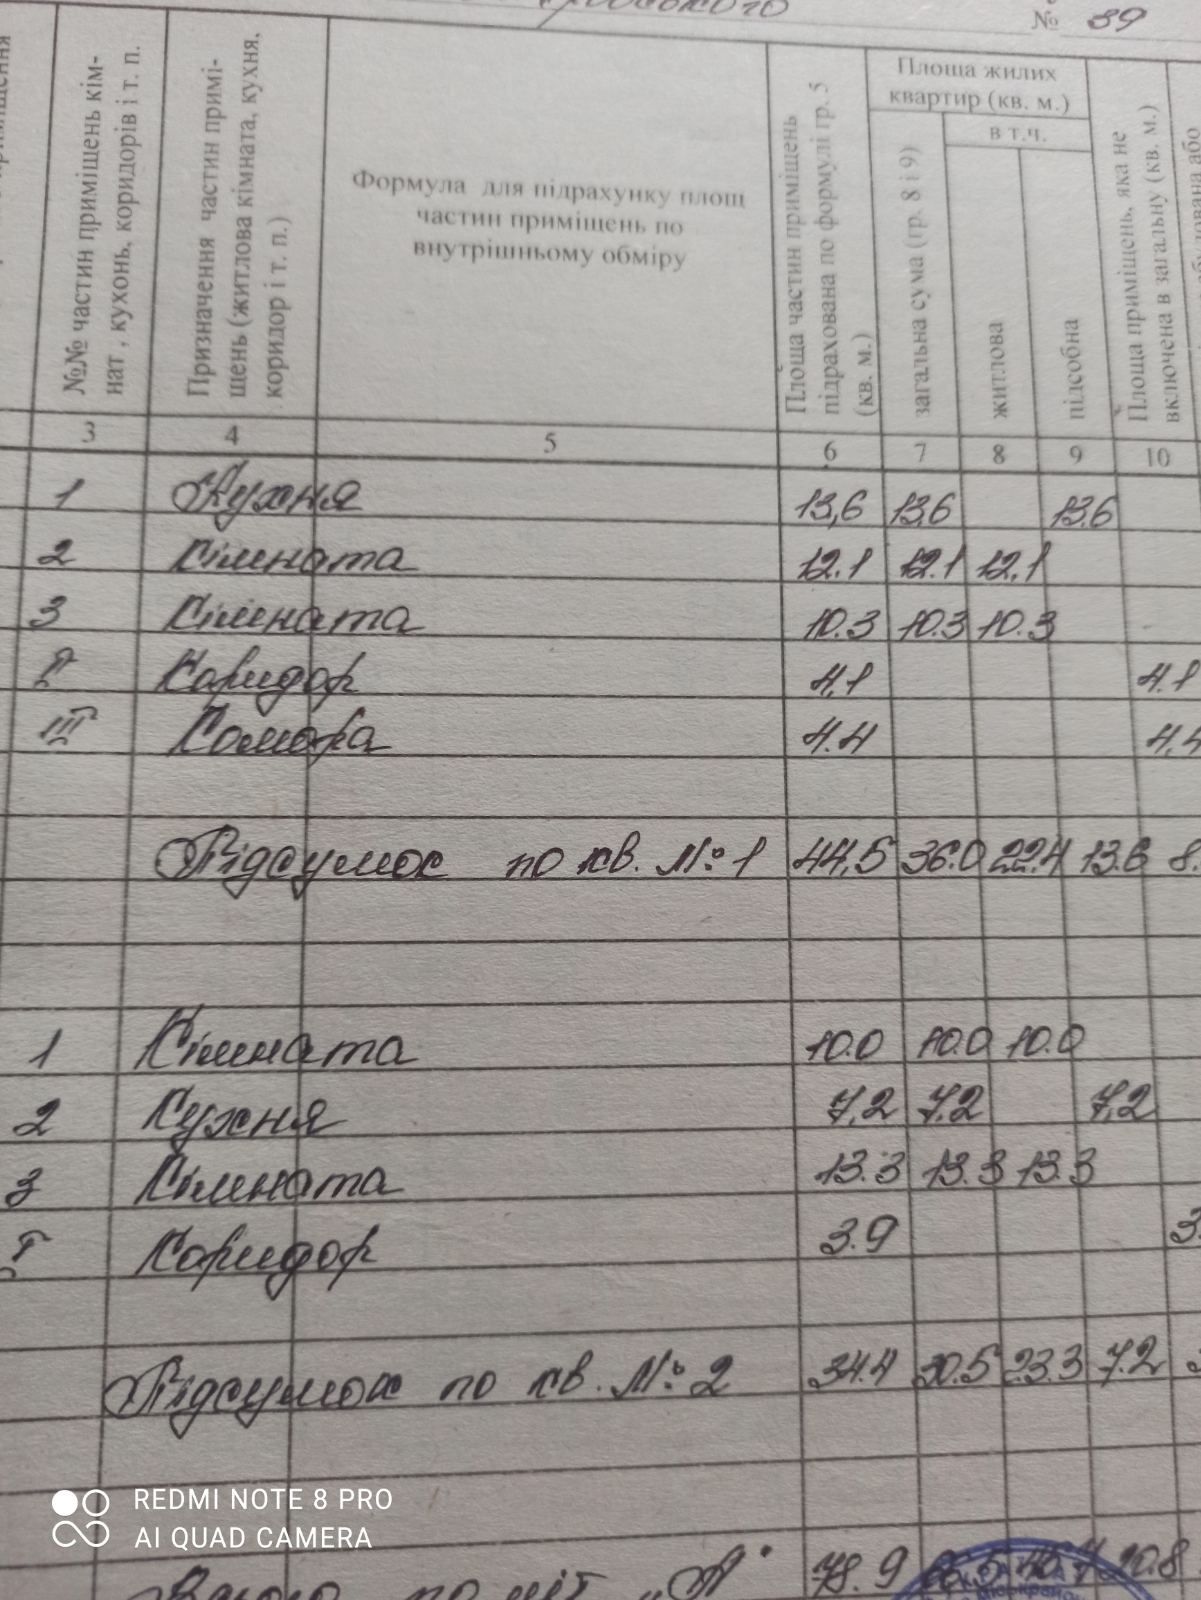 № 39
№№ частин приміщень кім-
нат , кухонь, коридорів і т. п.
Призначення частин примі-
щень (житлова кімната, кухня,
коридор і т. п.)
Формула для підрахунку площ
частин приміщень по
внутрішньому обміру
Площа частин приміщень
підрахована по формулі гр. 5
(кв. м.)
Площа жилих
квартир (кв. м.)
загальна сума (гр. 8 і 9)
в т.ч.
житлова
підсобна
Площа приміщень, яка не
включена в загальну (кв. м.)
3 4 5 6 7 8 9 10
1 Кухня 13,6 13.6 13.6
2 Кімната 12.1 12.1 12.1
3 Кімната 10.3 10.3 10.3
Коридор 4,1 4.1
III Комора 4.4 4.4
Підсумок по кв. №1 44,5 36.0 22.4 13.6 8.
1 Кімната 10.0 10.0 10.0
2 Кухня 7,2 7.2 7,2
3 Кімната 13.3 13.3 13.3
I Коридор 3.9 3.
Підсумок по кв. №2 34.4 30.5 23.3 7.2
по літ „А" 78.9 10.8
REDMI NOTE 8 PRO
AI QUAD CAMERA